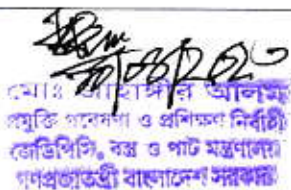 মোঃ জাহাঙ্গীর আলম
প্রযুক্তি গবেষণা ও প্রশিক্ষণ নির্বাহী
জেডিপিসি, বস্ত্র ও পাট মন্ত্রণালয়
গণপ্রজাতন্ত্রী বাংলাদেশ সরকার